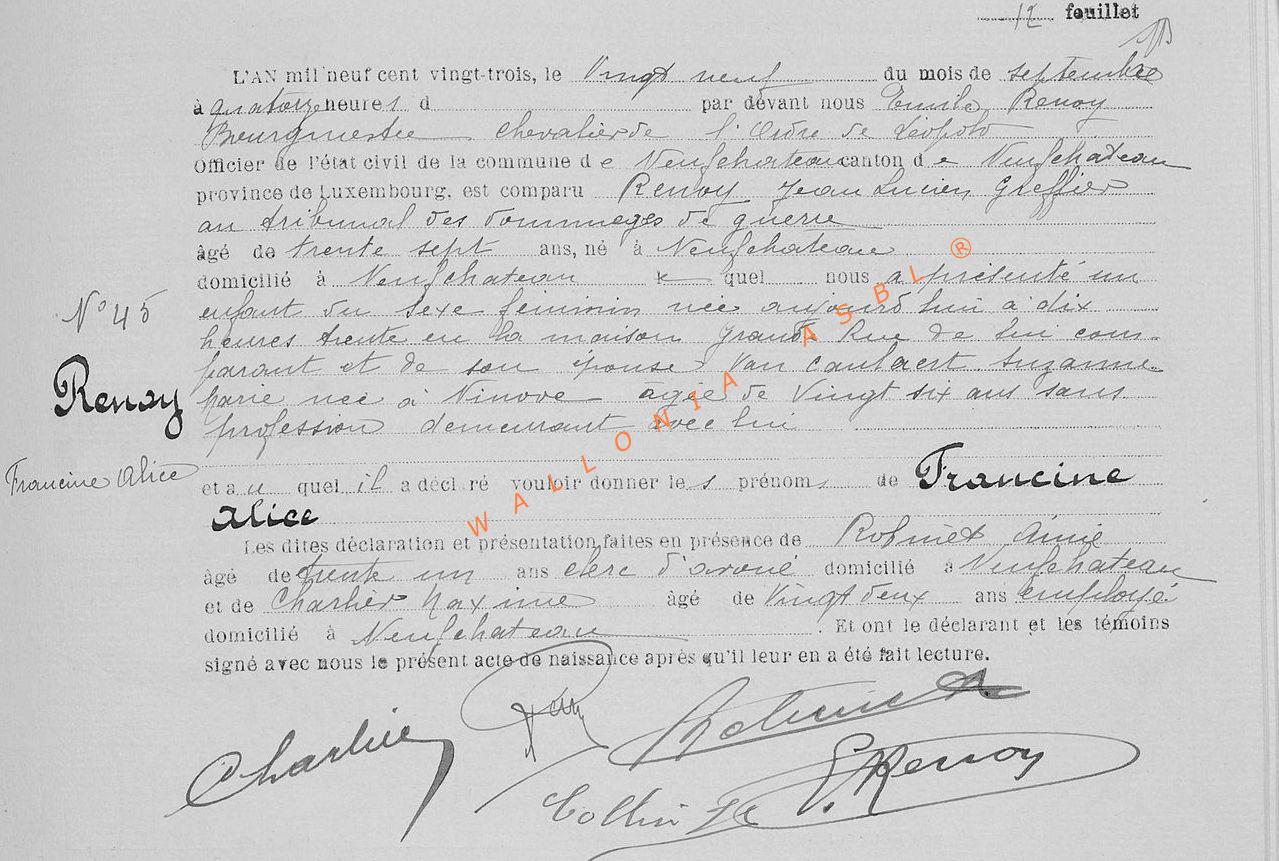 12 feuillet
L'AN mil neuf cent vingt-trois, le Vingt neuf du mois de septembre
à quatorze heures d par devant nous Emile Renoy
Bourgmestre chevalier de l'Ordre de Léopold
Officier de l'état civil de la commune de Neufchateau canton de Neufchateau
province de Luxembourg, est comparu Renoy Jean Lucien, Greffier
au tribunal des dommages de guerre
âgé de trente sept ans, né à Neufchateau
domicilié à Neufchateau le quel nous a présenté un
N° 45
enfant du sexe féminin née aujourd'hui à dix
heures trente en la maison Grand Rue de lui com-
parant et de son épouse Van Caulaert Suzanne
Renoy
Marie née à Ninove âgée de Vingt six ans sans
profession demeurant avec lui
Francine Alice
et au quel il a déclaré vouloir donner les prénoms de Francine
Alice
Les dites déclaration et présentation faites en présence de Robinet Aimé
âgé de trente un ans clerc d'avoué domicilié à Neufchateau
et de Charlier Maxime âgé de Vingt deux ans employé
domicilié à Neufchateau. Et ont le déclarant et les témoins
signé avec nous le présent acte de naissance après qu'il leur en a été fait lecture.
Charlier Robinet
Collin E. Renoy
WALLONIA ASBL ®